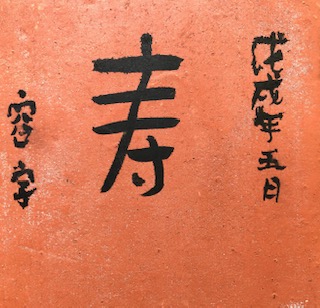 戊戌年五月
寿
容字